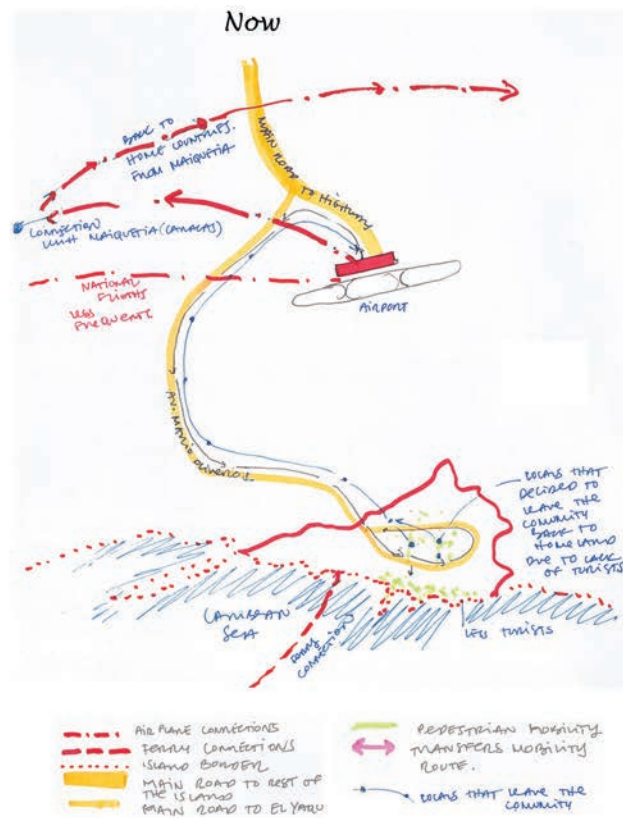 Now
MAIN ROAD TO HIGHWAY
BACK TO
HOME COUNTRIES.
FROM MAIQUETIA
CONNECTION
WITH MAIQUETIA (CARACAS)
NATIONAL
FLIGHTS
LESS
FREQUENTS
AIRPORT
AV. MARIO OLIVEROS.
LOCALS THAT
DECIDED TO
LEAVE THE
COMUNITY
BACK TO
HOMELAND
DUE TO LACK
OF TURISTS
CARIBEAN
SEA
FERRY
CONNECTIONS
LESS TURISTS
AIR PLANE CONNECTIONS
FERRY CONNECTIONS
ISLAND BORDER
MAIN ROAD TO REST OF
THE ISLAND
MAIN ROAD TO EL YAQU
PEDESTRIAN MOBILITY
TRANSFERS MOBILITY
ROUTE.
LOCALS THAT LEAVE THE
COMUNITY